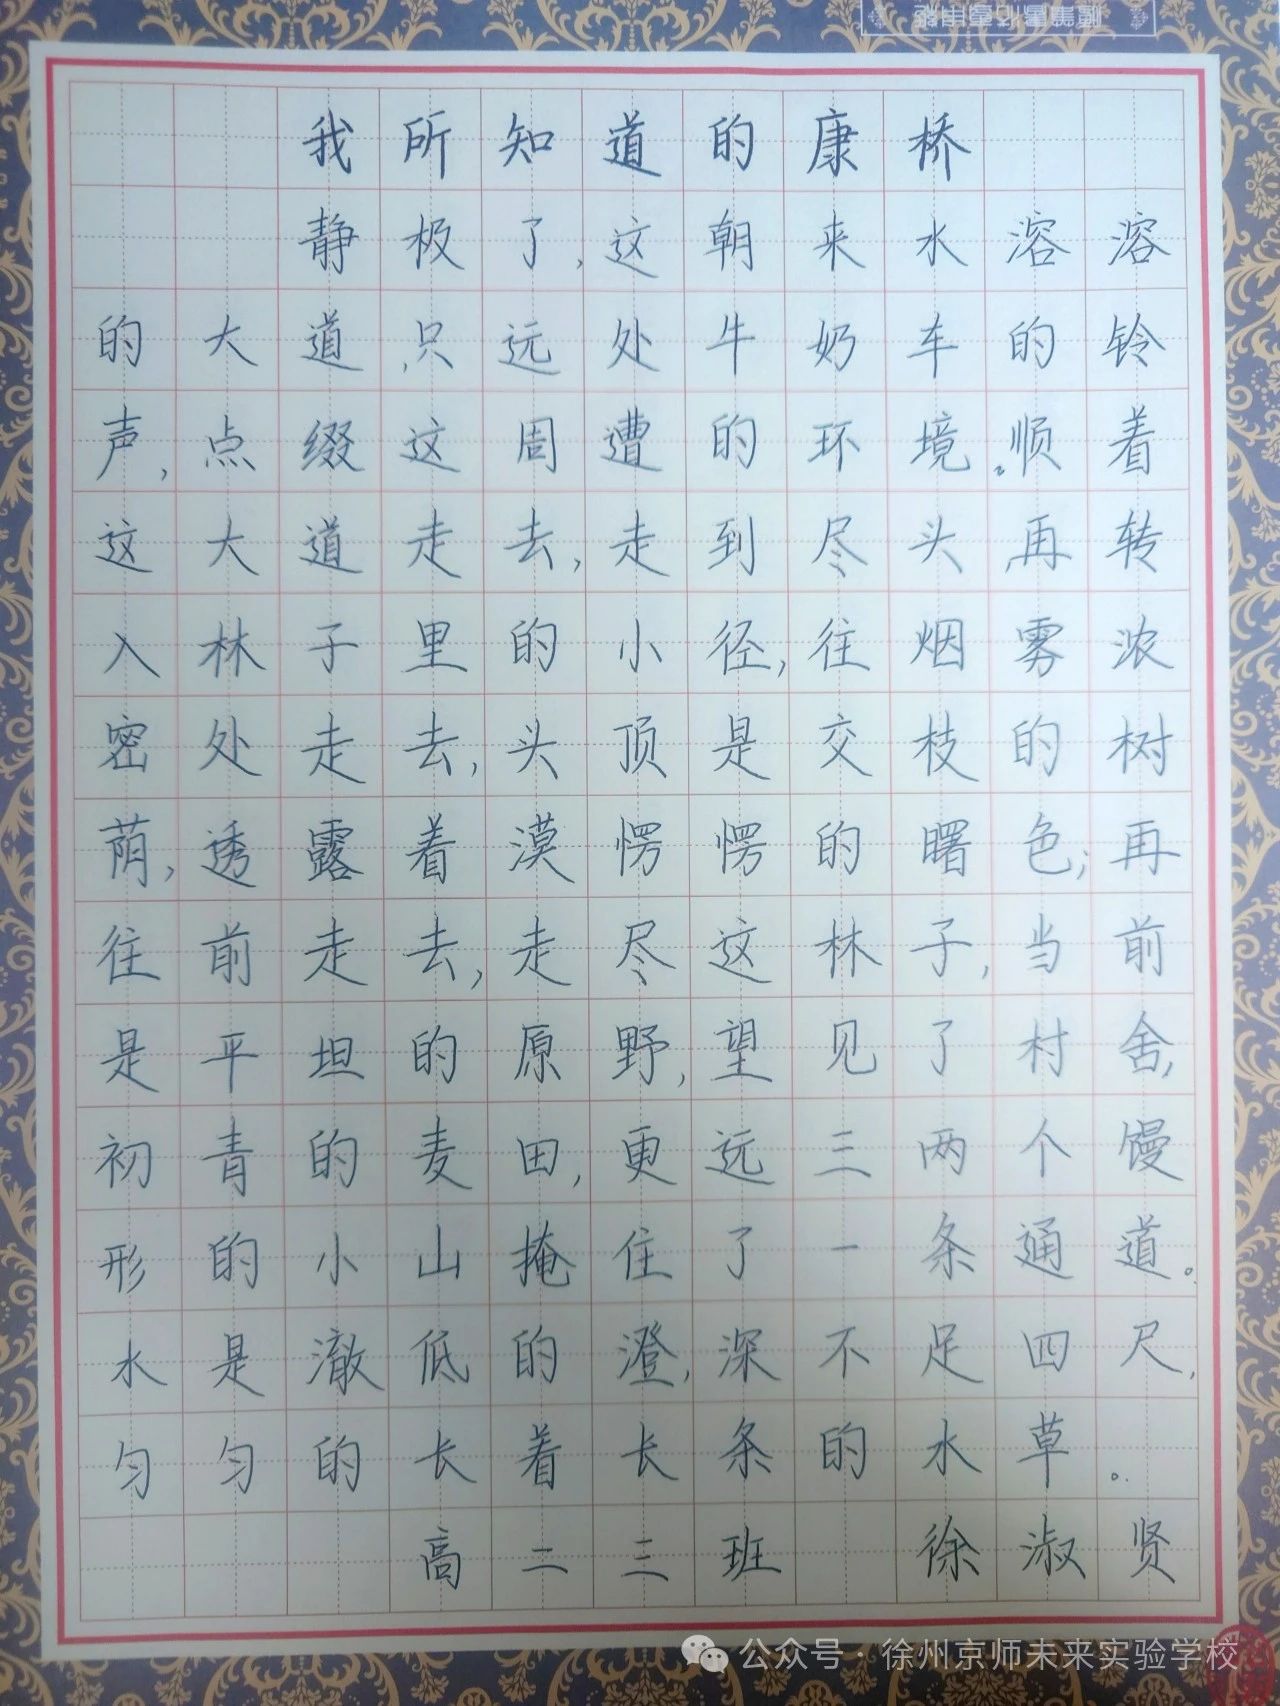 我所知道的康桥
静极了,这朝来水溶溶
的大道,只远处牛奶车的铃
声,点缀这周遭的环境。顺着
这大道走去,走到尽头,再转
入林子里的小径,往烟雾浓
密处走去,头顶是交枝的树
荫,透露着漠愣愣的曙色;再
往前走去,走尽这林子,当前
是平坦的原野,望见了村舍,
初青的麦田,更远三两个馒
形的小山掩住了一条通道。
水是澈低的澄,深不足四尺,
匀匀的长着长条的水草。
高二三班 徐淑贤
公众号·徐州京师未来实验学校